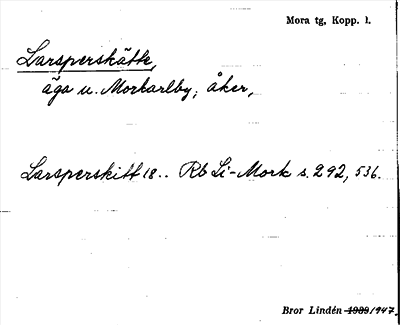 Mora tg, Kopp. l.
Larsperskätte,
äga u. Morkarlby; åker,
Larsperskitt 18.. Rb Li-Mork s. 292, 536.
Bror Lindén 1939/1947.